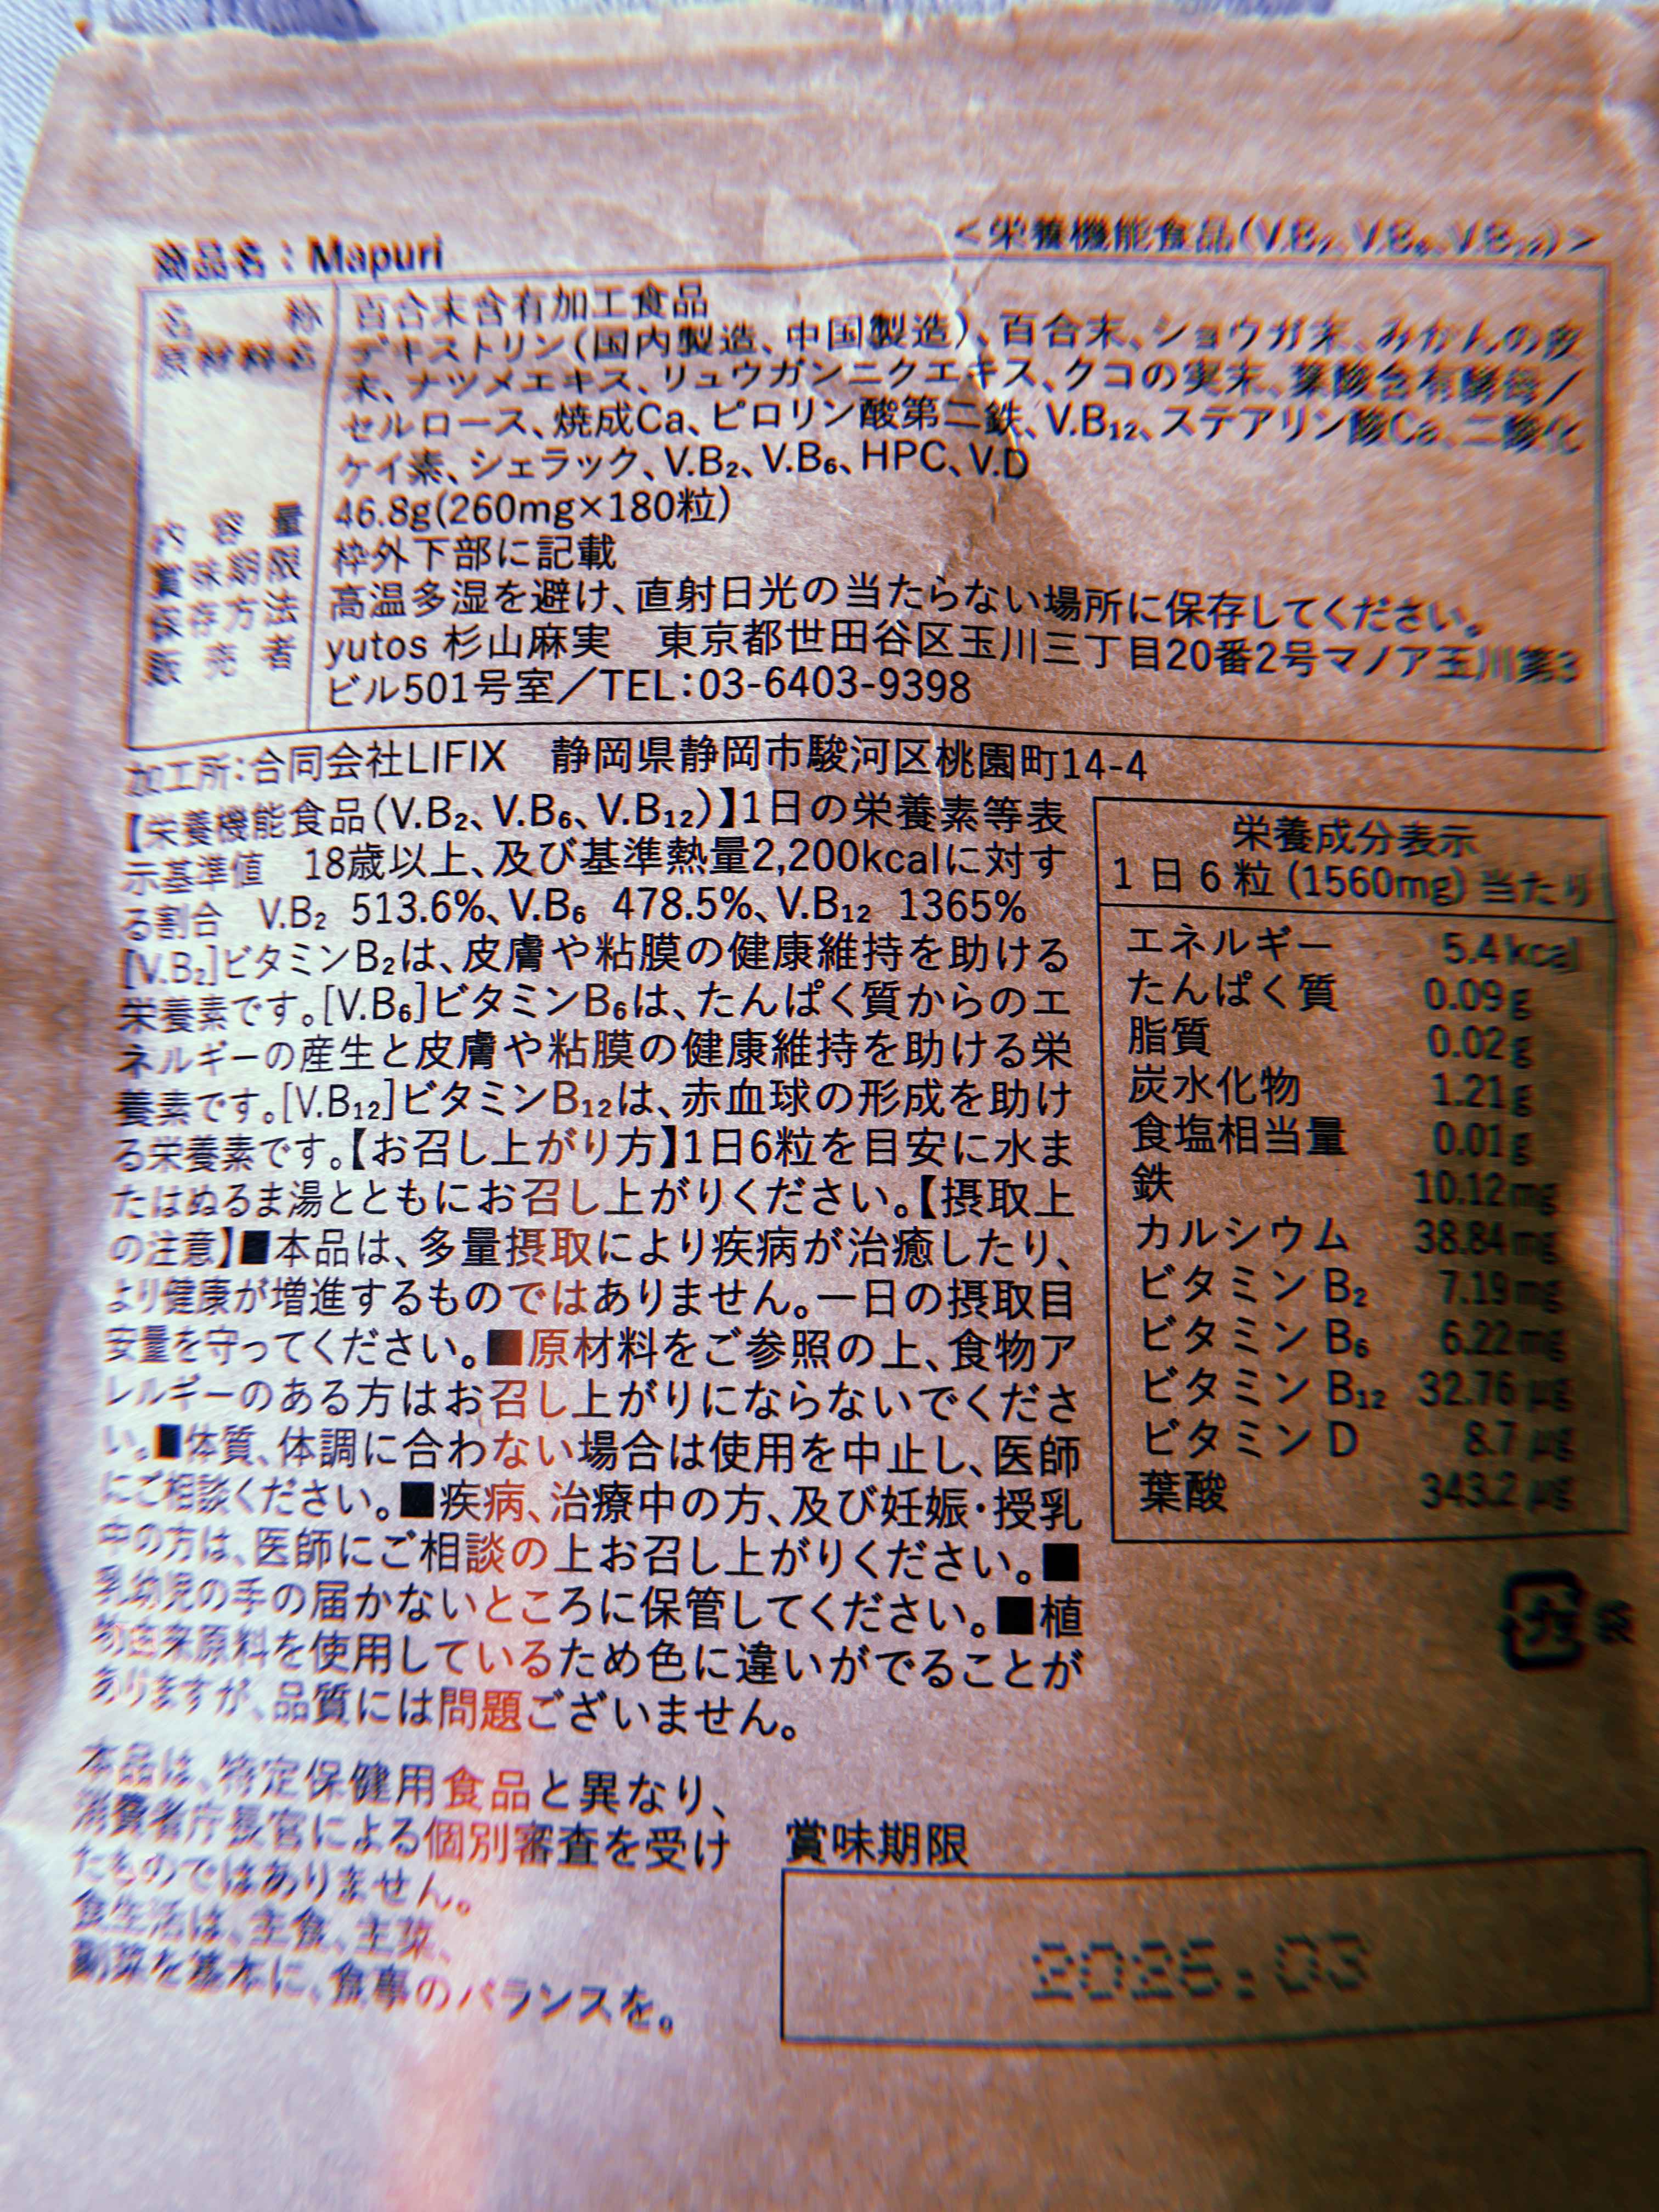 商品名：Mapuri
＜栄養機能食品(V.B₂、V.B₆、V.B₁₂)＞
名称 百合末含有加工食品
原材料名 デキストリン(国内製造、中国製造)、百合末、ショウガ末、みかんの皮
末、ナツメエキス、リュウガンニクエキス、クコの実末、葉酸含有酵母／
セルロース、焼成Ca、ピロリン酸第二鉄、V.B₁₂、ステアリン酸Ca、二酸化
ケイ素、シェラック、V.B₂、V.B₆、HPC、V.D
内容量 46.8g(260mg×180粒)
賞味期限 枠外下部に記載
保存方法 高温多湿を避け、直射日光の当たらない場所に保存してください。
販売者 yutos 杉山麻実　東京都世田谷区玉川三丁目20番2号マノア玉川第3
ビル501号室／TEL：03-6403-9398
加工所：合同会社LIFIX　静岡県静岡市駿河区桃園町14-4
【栄養機能食品(V.B₂、V.B₆、V.B₁₂)】1日の栄養素等表
示基準値　18歳以上、及び基準熱量2,200kcalに対す
る割合　V.B₂ 513.6%、V.B₆ 478.5%、V.B₁₂ 1365%
[V.B₂]ビタミンB₂は、皮膚や粘膜の健康維持を助ける
栄養素です。[V.B₆]ビタミンB₆は、たんぱく質からのエ
ネルギーの産生と皮膚や粘膜の健康維持を助ける栄
養素です。[V.B₁₂]ビタミンB₁₂は、赤血球の形成を助け
る栄養素です。【お召し上がり方】1日6粒を目安に水ま
たはぬるま湯とともにお召し上がりください。【摂取上
の注意】■本品は、多量摂取により疾病が治癒したり、
より健康が増進するものではありません。一日の摂取目
安量を守ってください。■原材料をご参照の上、食物ア
レルギーのある方はお召し上がりにならないでくださ
い。■体質、体調に合わない場合は使用を中止し、医師
にご相談ください。■疾病、治療中の方、及び妊娠・授乳
中の方は、医師にご相談の上お召し上がりください。■
乳幼児の手の届かないところに保管してください。■植
物由来原料を使用しているため色に違いがでることが
ありますが、品質には問題ございません。
栄養成分表示
1日6粒(1560mg)当たり
エネルギー 5.4kcal
たんぱく質 0.09g
脂質 0.02g
炭水化物 1.21g
食塩相当量 0.01g
鉄 10.12mg
カルシウム 38.84mg
ビタミンB₂ 7.19mg
ビタミンB₆ 6.22mg
ビタミンB₁₂ 32.76μg
ビタミンD 8.7μg
葉酸 343.2μg
プラ 袋
本品は、特定保健用食品と異なり、
消費者庁長官による個別審査を受け
たものではありません。
食生活は、主食、主菜、
副菜を基本に、食事のバランスを。
賞味期限
2026.03